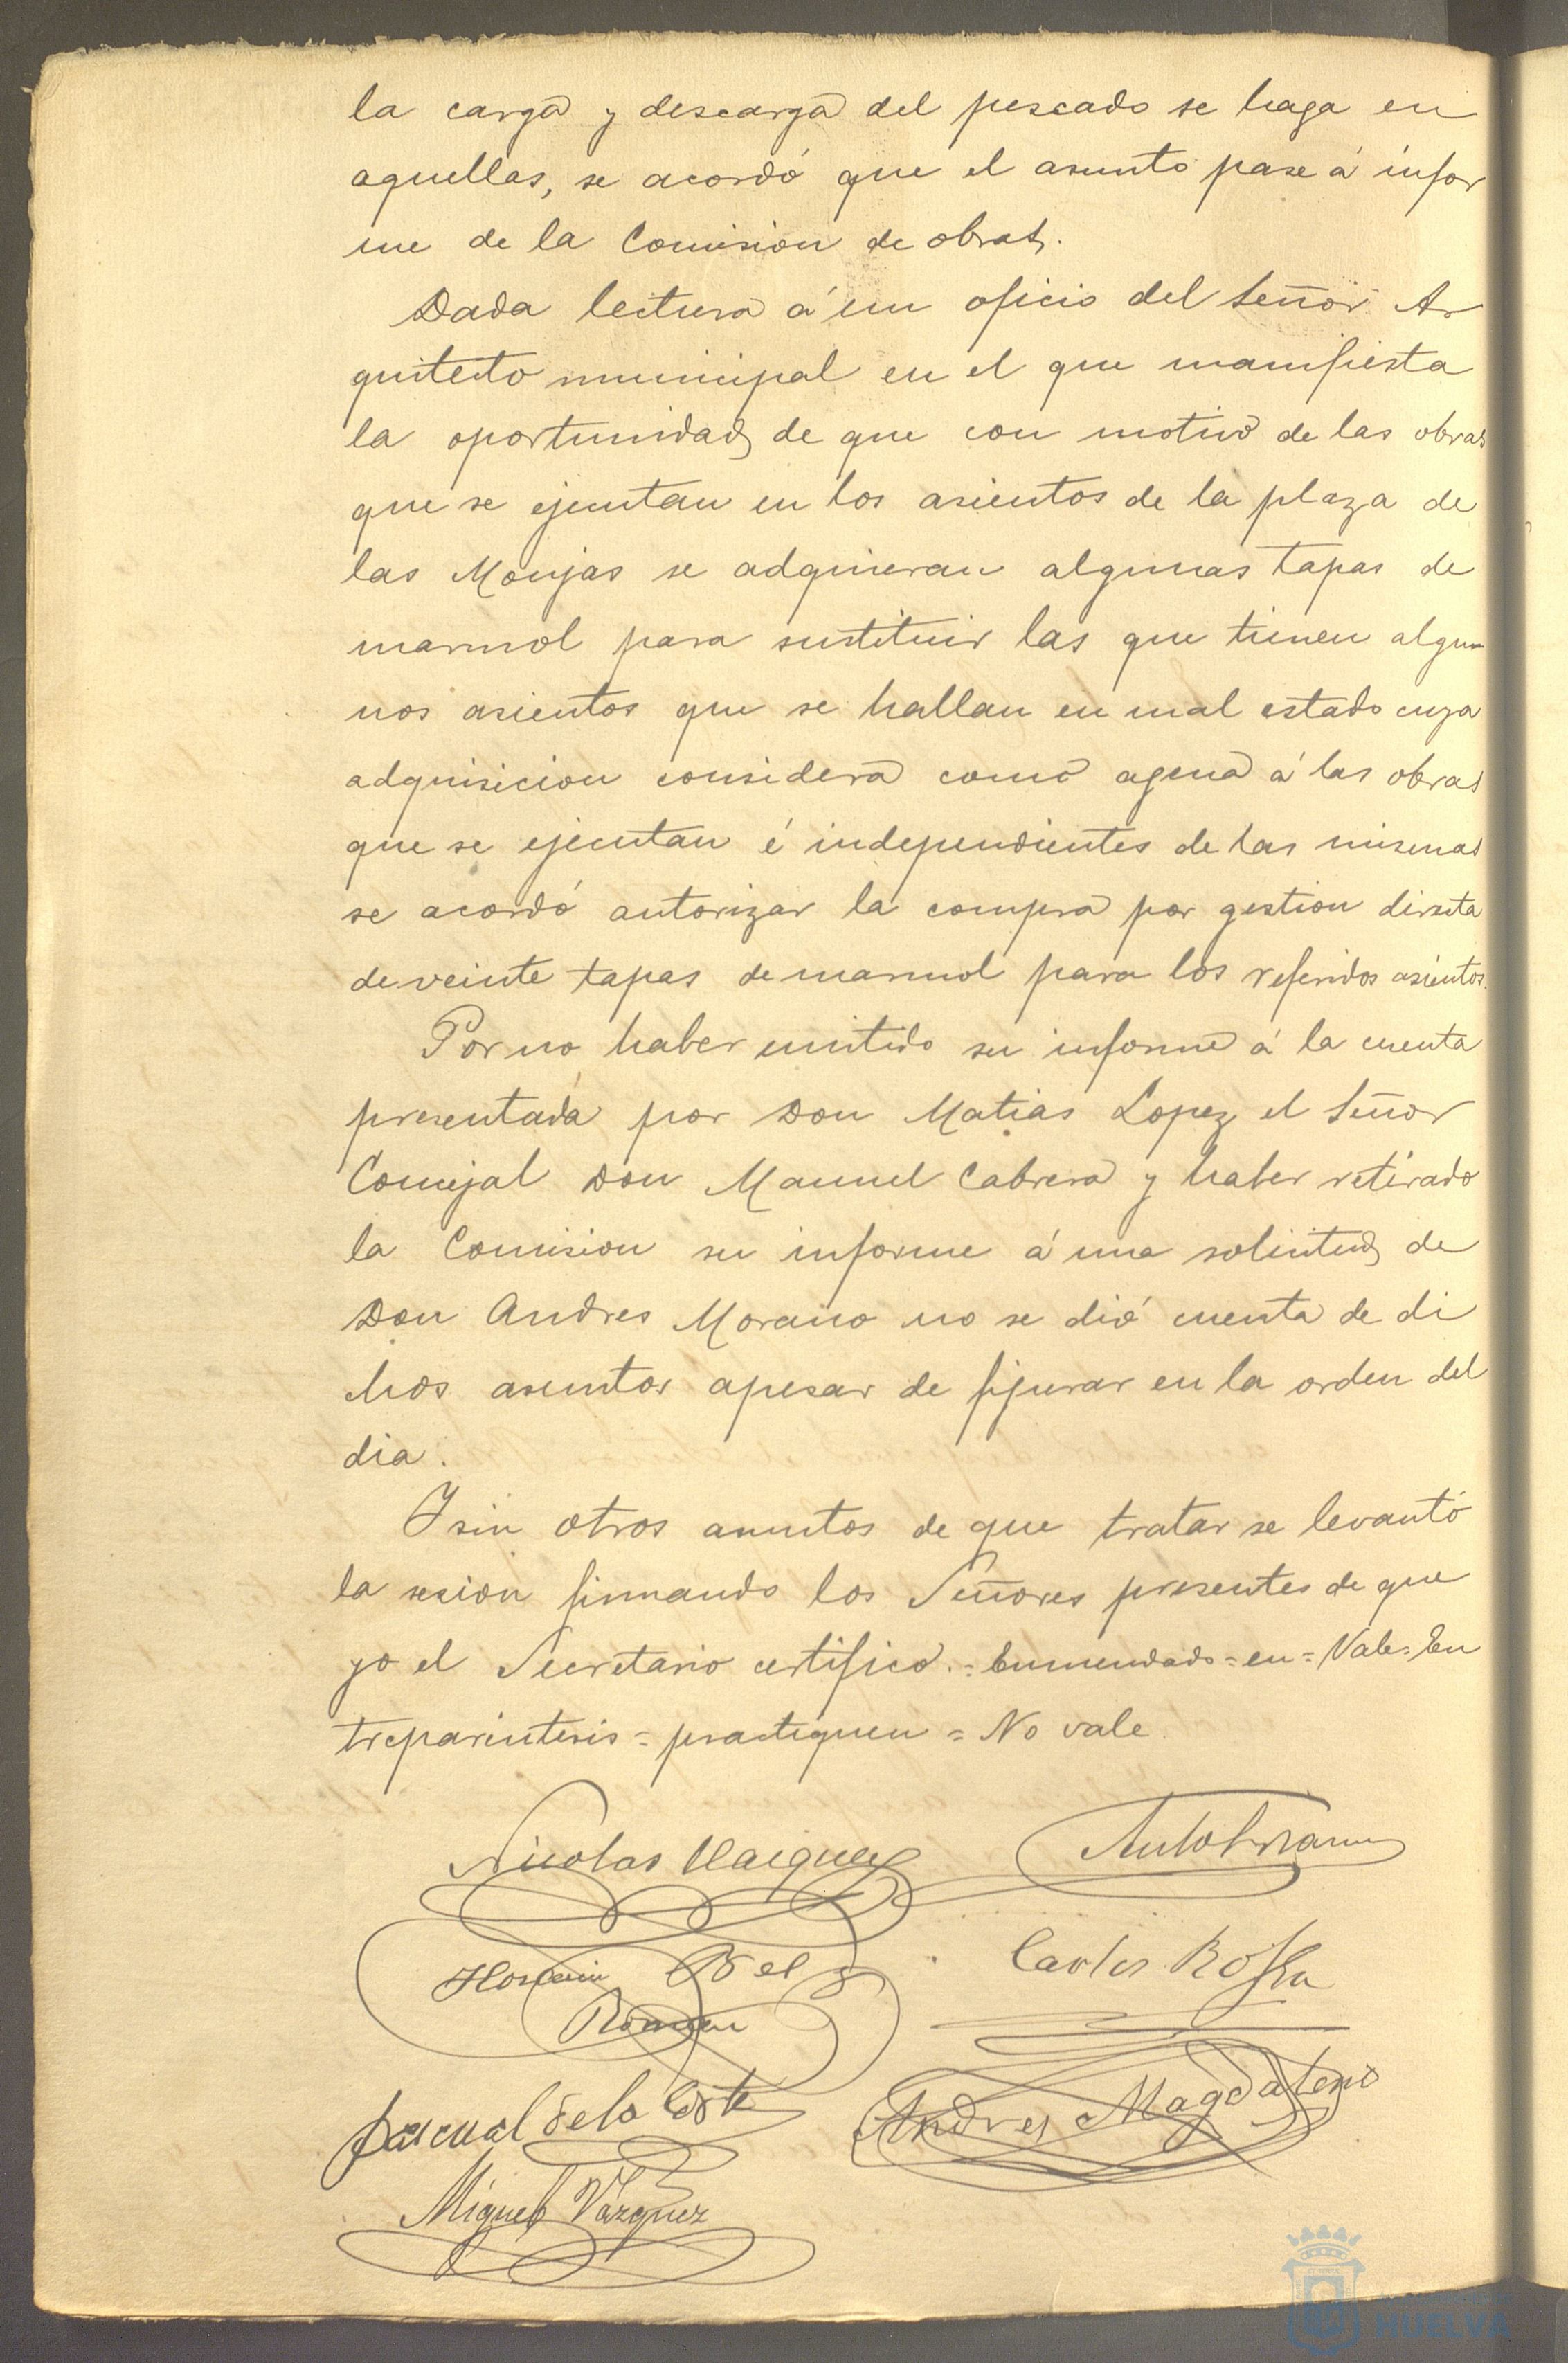 la carga y descarga del pescado se haga en
aquellas, se acordó que el asunto pase á infor
me de la Comision de obras.
Dada lectura á un oficio del Señor Ar
quitecto municipal en el que manifiesta
la oportunidad de que con motivo de las obras
que se ejecutan en los asientos de la plaza de
las Monjas se adquieran algunas tapas de
marmol para sustituir las que tienen algu
nos asientos que se hallan en mal estado cuya
adquisicion considera como agena á las obras
que se ejecutan é independientes de las mismas
se acordó autorizar la compra por gestion directa
de veinte tapas de marmol para los referidos asientos.
Por no haber emitido su informe á la cuenta
presentada por Don Matias Lopez el Señor
Concejal Don Manuel Cabrera y haber retirado
la Comision su informe á una solicitud de
Don Andres Moraño no se dió cuenta de di
chos asuntos apesar de figurar en la orden del
dia.
Y sin otros asuntos de que tratar se levantó
la sesion firmando los Señores presentes de que
yo el Secretario certifico.=Enmendado=en=Vale=En
treparentesis=practiquen=No vale
Nicolas Vazquez
Carlos
Pascual de la Corte
Andres Magdaleno
Miguel Vázquez
HUELVA